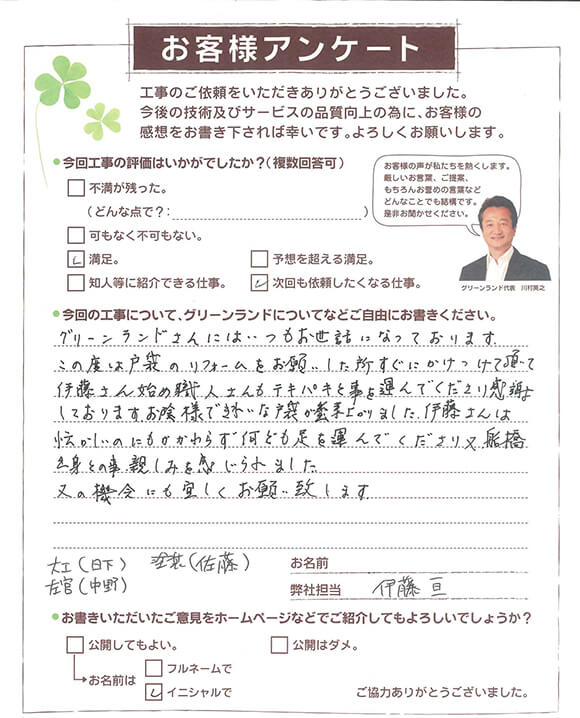 お客様アンケート
工事のご依頼をいただきありがとうございました。
今後の技術及びサービスの品質向上の為に、お客様の
感想をお書き下されば幸いです。よろしくお願いします。
●今回工事の評価はいかがでしたか?(複数回答可)
不満が残った。
(どんな点で?: )
可もなく不可もない。
満足。
予想を超える満足。
知人等に紹介できる仕事。
次回も依頼したくなる仕事。
お客様の声が私たちを熱くします。
厳しいお言葉、ご提案、
もちろんお誉めの言葉など
どんなことでも結構です。
是非お聞かせください。
グリーンランド代表 川村英之
●今回の工事について、グリーンランドについてなどご自由にお書きください。
グリーンランドさんにはいつもお世話になっております.
この度は戸袋のリフォームをお願いした所すぐにかけつけて頂いて
伊藤さん始め職人さんもテキパキと事を運んでくださり感謝
しております.お陰様できれいな戸袋が出来上がりました.伊藤さんは
忙がしいのにもかかわらず何ども足を運んでくださり又、船橋
出身との事.親しみを感じられました
又の機会にも宜しくお願い致します
大工(日下) 塗装(佐藤)
左官(中野)
お名前
弊社担当 伊藤 亘
●お書きいただいたご意見をホームページなどでご紹介してもよろしいでしょうか?
公開してもよい。
公開はダメ。
お名前は
フルネームで
イニシャルで
ご協力ありがとうございました。